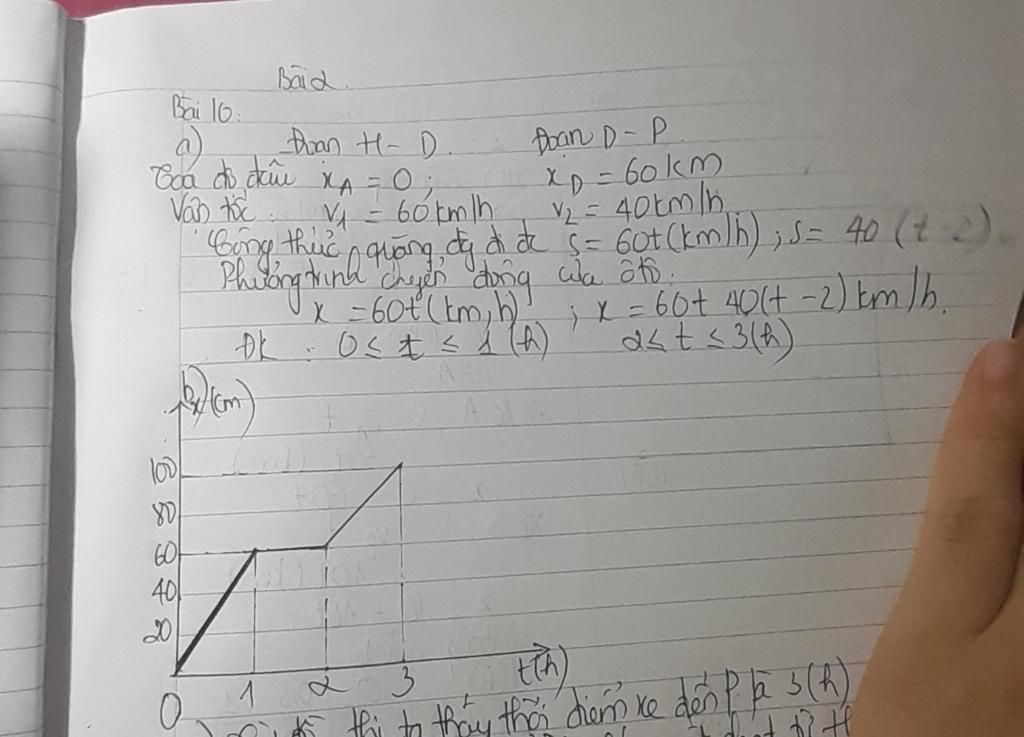 Bài 2.
Bài 10:
a) Đoạn H - D. Đoạn D - P.
Tọa độ đầu x_A = 0; x_D = 60 km
Vận tốc: v_1 = 60 km/h v_2 = 40 km/h
Công thức quãng đg đi đc s = 60t (km/h); s = 40 (t - 2).
Phương trình chuyển động của ôtô.
x = 60t (km, h) ; x = 60 + 40(t - 2) km/h.
ĐK : 0 ≤ t ≤ 1 (h) 2 ≤ t ≤ 3 (h)
b) x (km)
100
80
60
40
20
0 1 2 3 t(h)
đồ thị ta thấy thời điểm xe đến P là 3 (h)